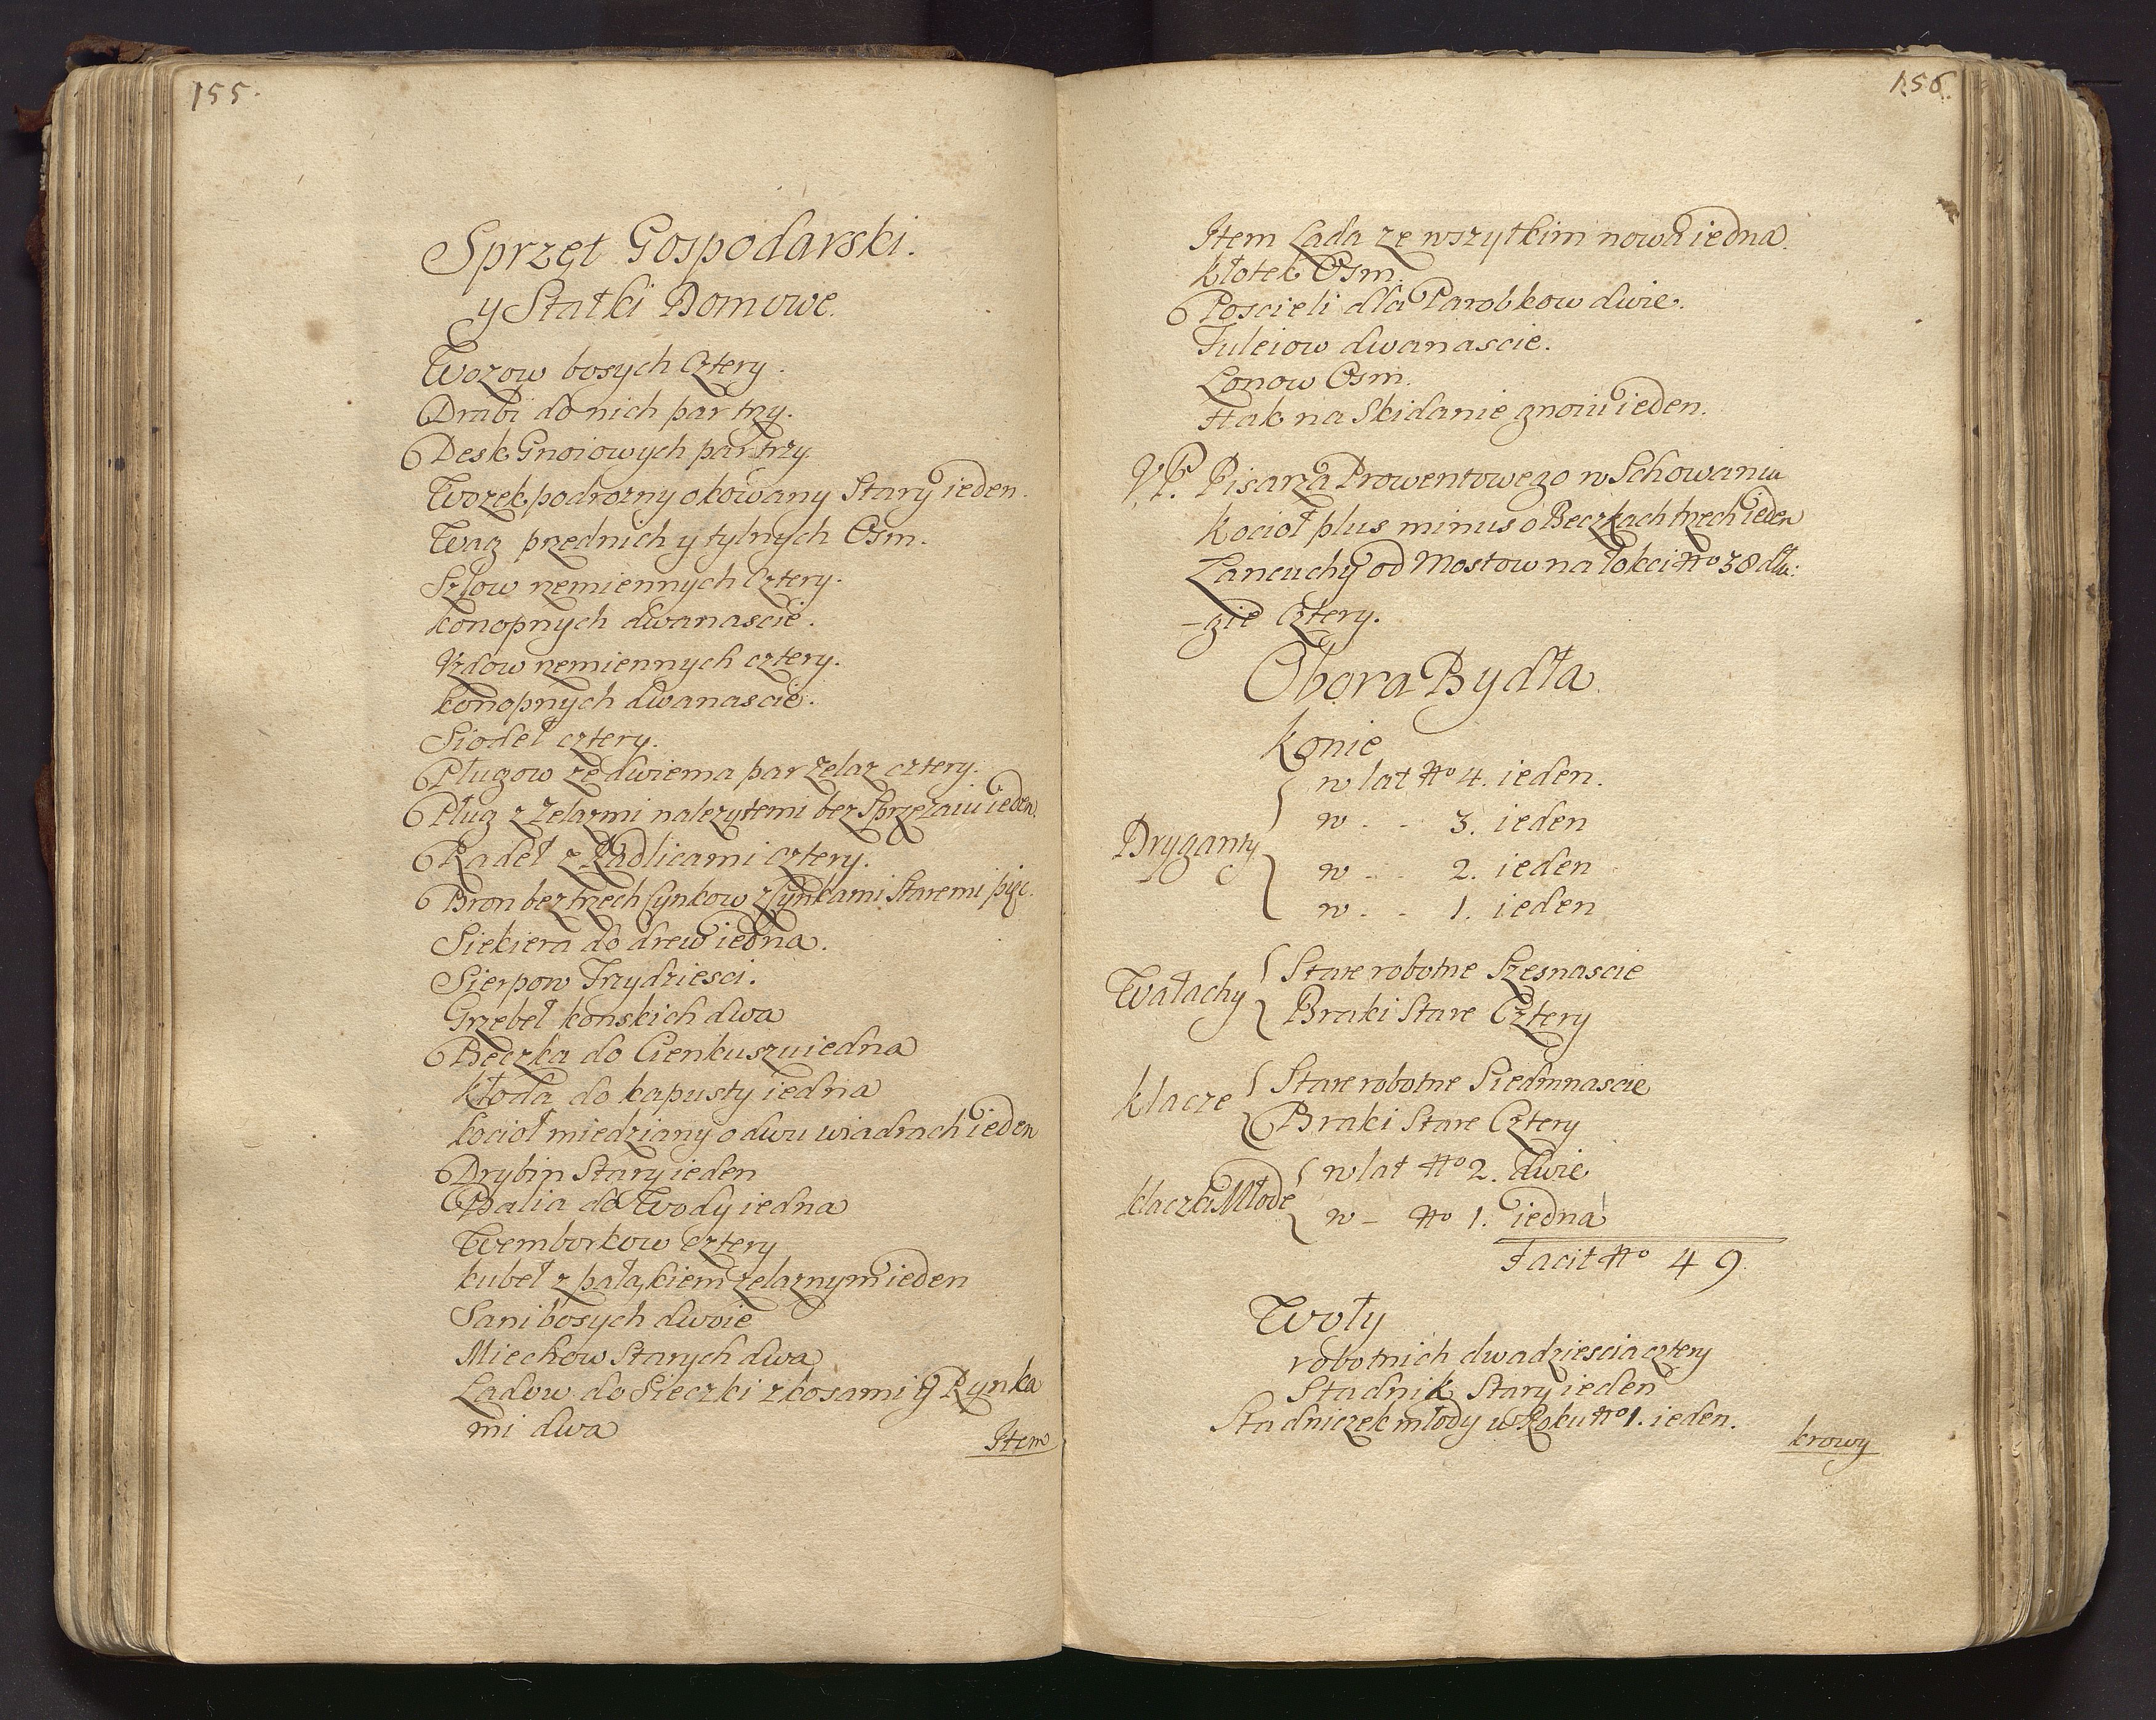 155.
Sprzęt Gospodarski.
y Statki Domowe.
Wozow bosych Cztery.
Drabi do nich par trzy.
Desk Gnoiowych par trzy
Wozek podrozny okowany Stary ieden.
Wag przednich y tylnych Osm.
Szlow rzemiennych Cztery.
konopnych dwanascie.
Vzdow rzemiennych cztery.
konopnych dwanascie.
Siodeł cztery.
Pługow ze dwiema par Zelaz cztery.
Pług z Zelazmi nalezytemi bez Sprzęzaiu ieden.
Radeł z Radlicami cztery.
Bron bez trzech synkow z synkami Staremi pięc.
Siekiera do drew iedna.
Sierpow Trzydziesci.
Grzebeł konskich dwa
Beczka do Cienkuszu iedna
kłoda do kapusty iedna
kocioł miedziany o dwu wiadrach ieden
Drybin Stary ieden
Balia do Wody iedna
Wemborkow cztery
kubeł z pałąkiem zelaznym ieden
Sani bosych dwoie
Miechow Starych dwa
Ladow do Sieczki z kosami y Rynka
mi dwa
Item
156.
Item Lada ze wszytkim nowa iedna.
kłotek Osm.
Poscieli dla Parobkow dwie.
Tuleiow dwanascie.
Lonow Osm.
Hak na Skidanie gnoiu ieden.
VP. Pisarza Prowentowego w Schowaniu
kocioł plus minus o Beczkach trzech ieden
Lancuchy od Mostow na łokci Nro 38 dłu:
-gie Cztery.
Obora Bydła.
konie
Dryganty
w lat Nro 4. ieden.
w . . 3. ieden
w . . 2. ieden
w . . 1. ieden
Wałachy
Stare robotne Szesnascie
Braki Stare Cztery
klacze
Stare robotne Siedmnascie
Braki Stare Cztery
klaczki Młode
w lat Nro 2. dwie
w - Nro 1. iedna
Facit Nro 49.
Woły
robotnich dwadziescia cztery
Stadnik Stary ieden
Stadniczek młody w Roku Nro 1. ieden.
krowy